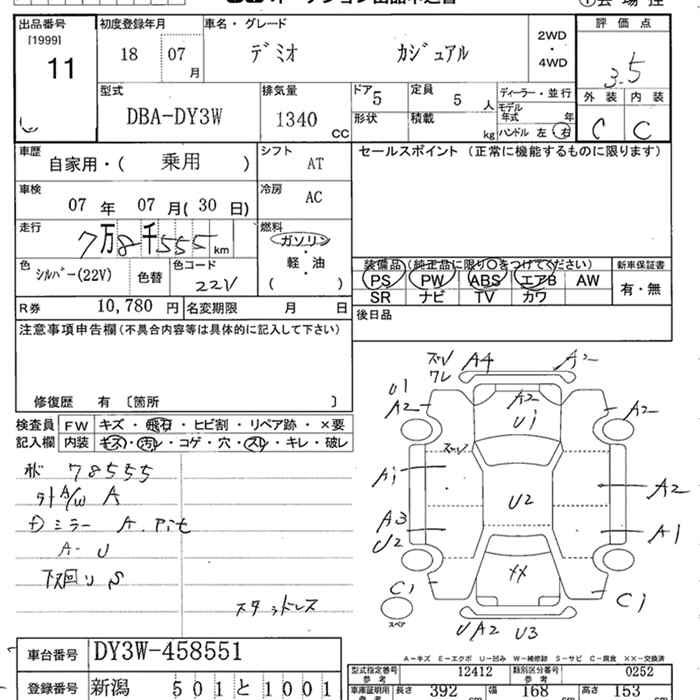 会場控
出品番号 初度登録年月 車名・グレード 評価点
[1999] 11 18 07月 デミオ カジュアル 2WD・4WD 3.5
外装 内装
C C
型式 排気量 ドア 定員 ディーラー・並行
DBA-DY3W 1340 CC 5 5 人 モデル年式 年
形状 積載 kg ハンドル 左 右
車歴 自家用・( 乗用 ) シフト AT
セールスポイント (正常に機能するものに限ります)
車検 07 年 07 月( 30 日) 冷房 AC
走行 7万8千555 km 燃料 ガソリン・軽・油 ( )
色 シルバー(22V) 色替 色コード 22V
装備品 (純正品に限り○をつけてください) 新車保証書
PS PW ABS エアB AW 有・無
SR ナビ TV カワ
R券 10,780 円 名変期限 月 日
後日品
注意事項申告欄(不具合内容等は具体的に記入して下さい)
修復歴 有 〔箇所 〕
検査員 FW キズ・飛石・ヒビ割・リペア跡・×要
記入欄 内装 キズ・汚レ・コゲ・穴・スレ・キレ・破レ
78555
A/W A
ミラー A. Pit
A- U
下廻り S
スタッドレス
ズレ A4
ワレ
U1
A2 A2 A2
U1
A1 U2 A2
A3 A1
U2
C1 XX C1
スペア
UA2 U3
A-キズ E-エクボ U-凹み W-補修跡 S-サビ C-腐食 XX-交換済
車台番号 DY3W-458551
型式指定番号 参考 12412 類別区分番号 参考 0252
登録番号 新潟 501 と 1001
車庫証明用 参考 長さ 392 幅 168 高さ 153